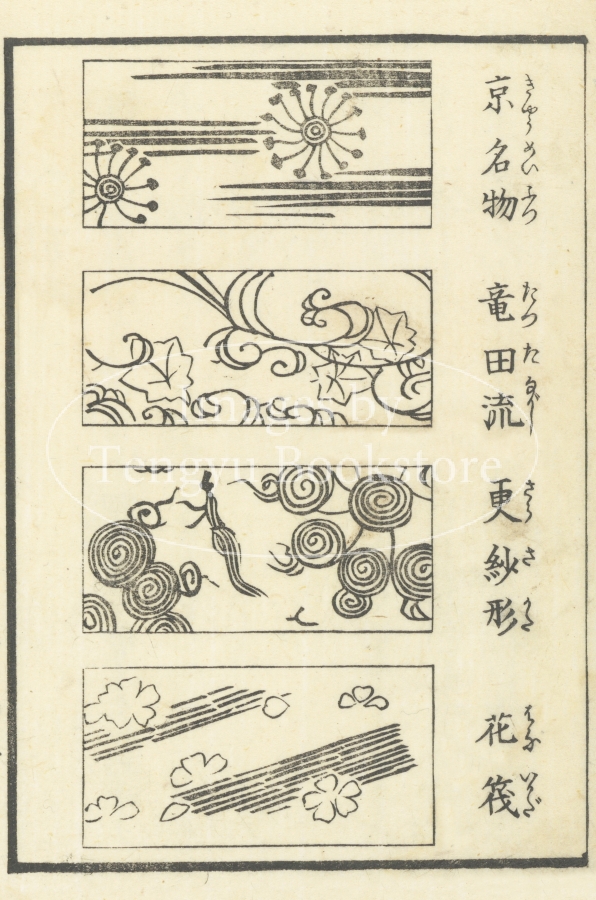 京名物
きやうめいぶつ
竜田流
たつた
更紗形
さらさかた
花筏
はないかだ
Images by
Tengyu Bookstore